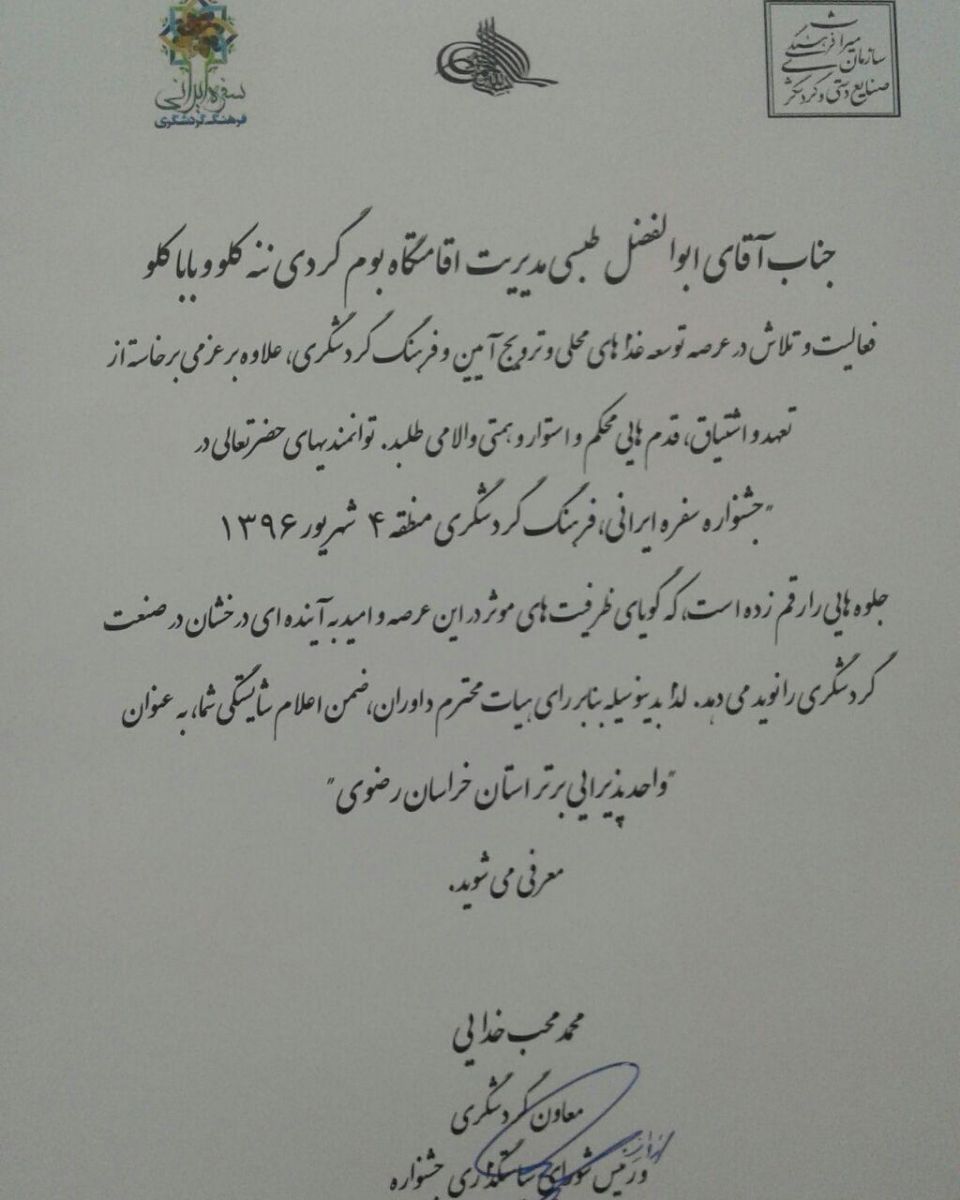 سازمان میراث فرهنگی
صنایع دستی و گردشگری
سفره ایرانی
فرهنگ گردشگری
جناب آقای ابوالفضل طبسی مدیریت اقامتگاه بوم گردی ننه کلو و بابا کلو
فعالیت و تلاش در عرصه توسعه غذاهای محلی و ترویج آیین و فرهنگ گردشگری، علاوه بر عزمی برخاسته از
تعهد و اشتیاق، قدم هایی محکم و استوار و همتی والا می طلبد. توانمندیهای حضرتعالی در
"جشنواره سفره ایرانی، فرهنگ گردشگری منطقه ۴ شهریور ۱۳۹۶
جلوه هایی را رقم زده است، که گویای ظرفیت های موثر در این عرصه و امید به آینده ای درخشان در صنعت
گردشگری را نوید می دهد. لذا بدینوسیله بنابر رای هیات محترم داوران، ضمن اعلام شایستگی شما، به عنوان
"واحد پذیرایی برتر استان خراسان رضوی"
معرفی می شوید.
محمد محب خدایی
معاون گردشگری
و رئیس شورای سیاستگذاری جشنواره